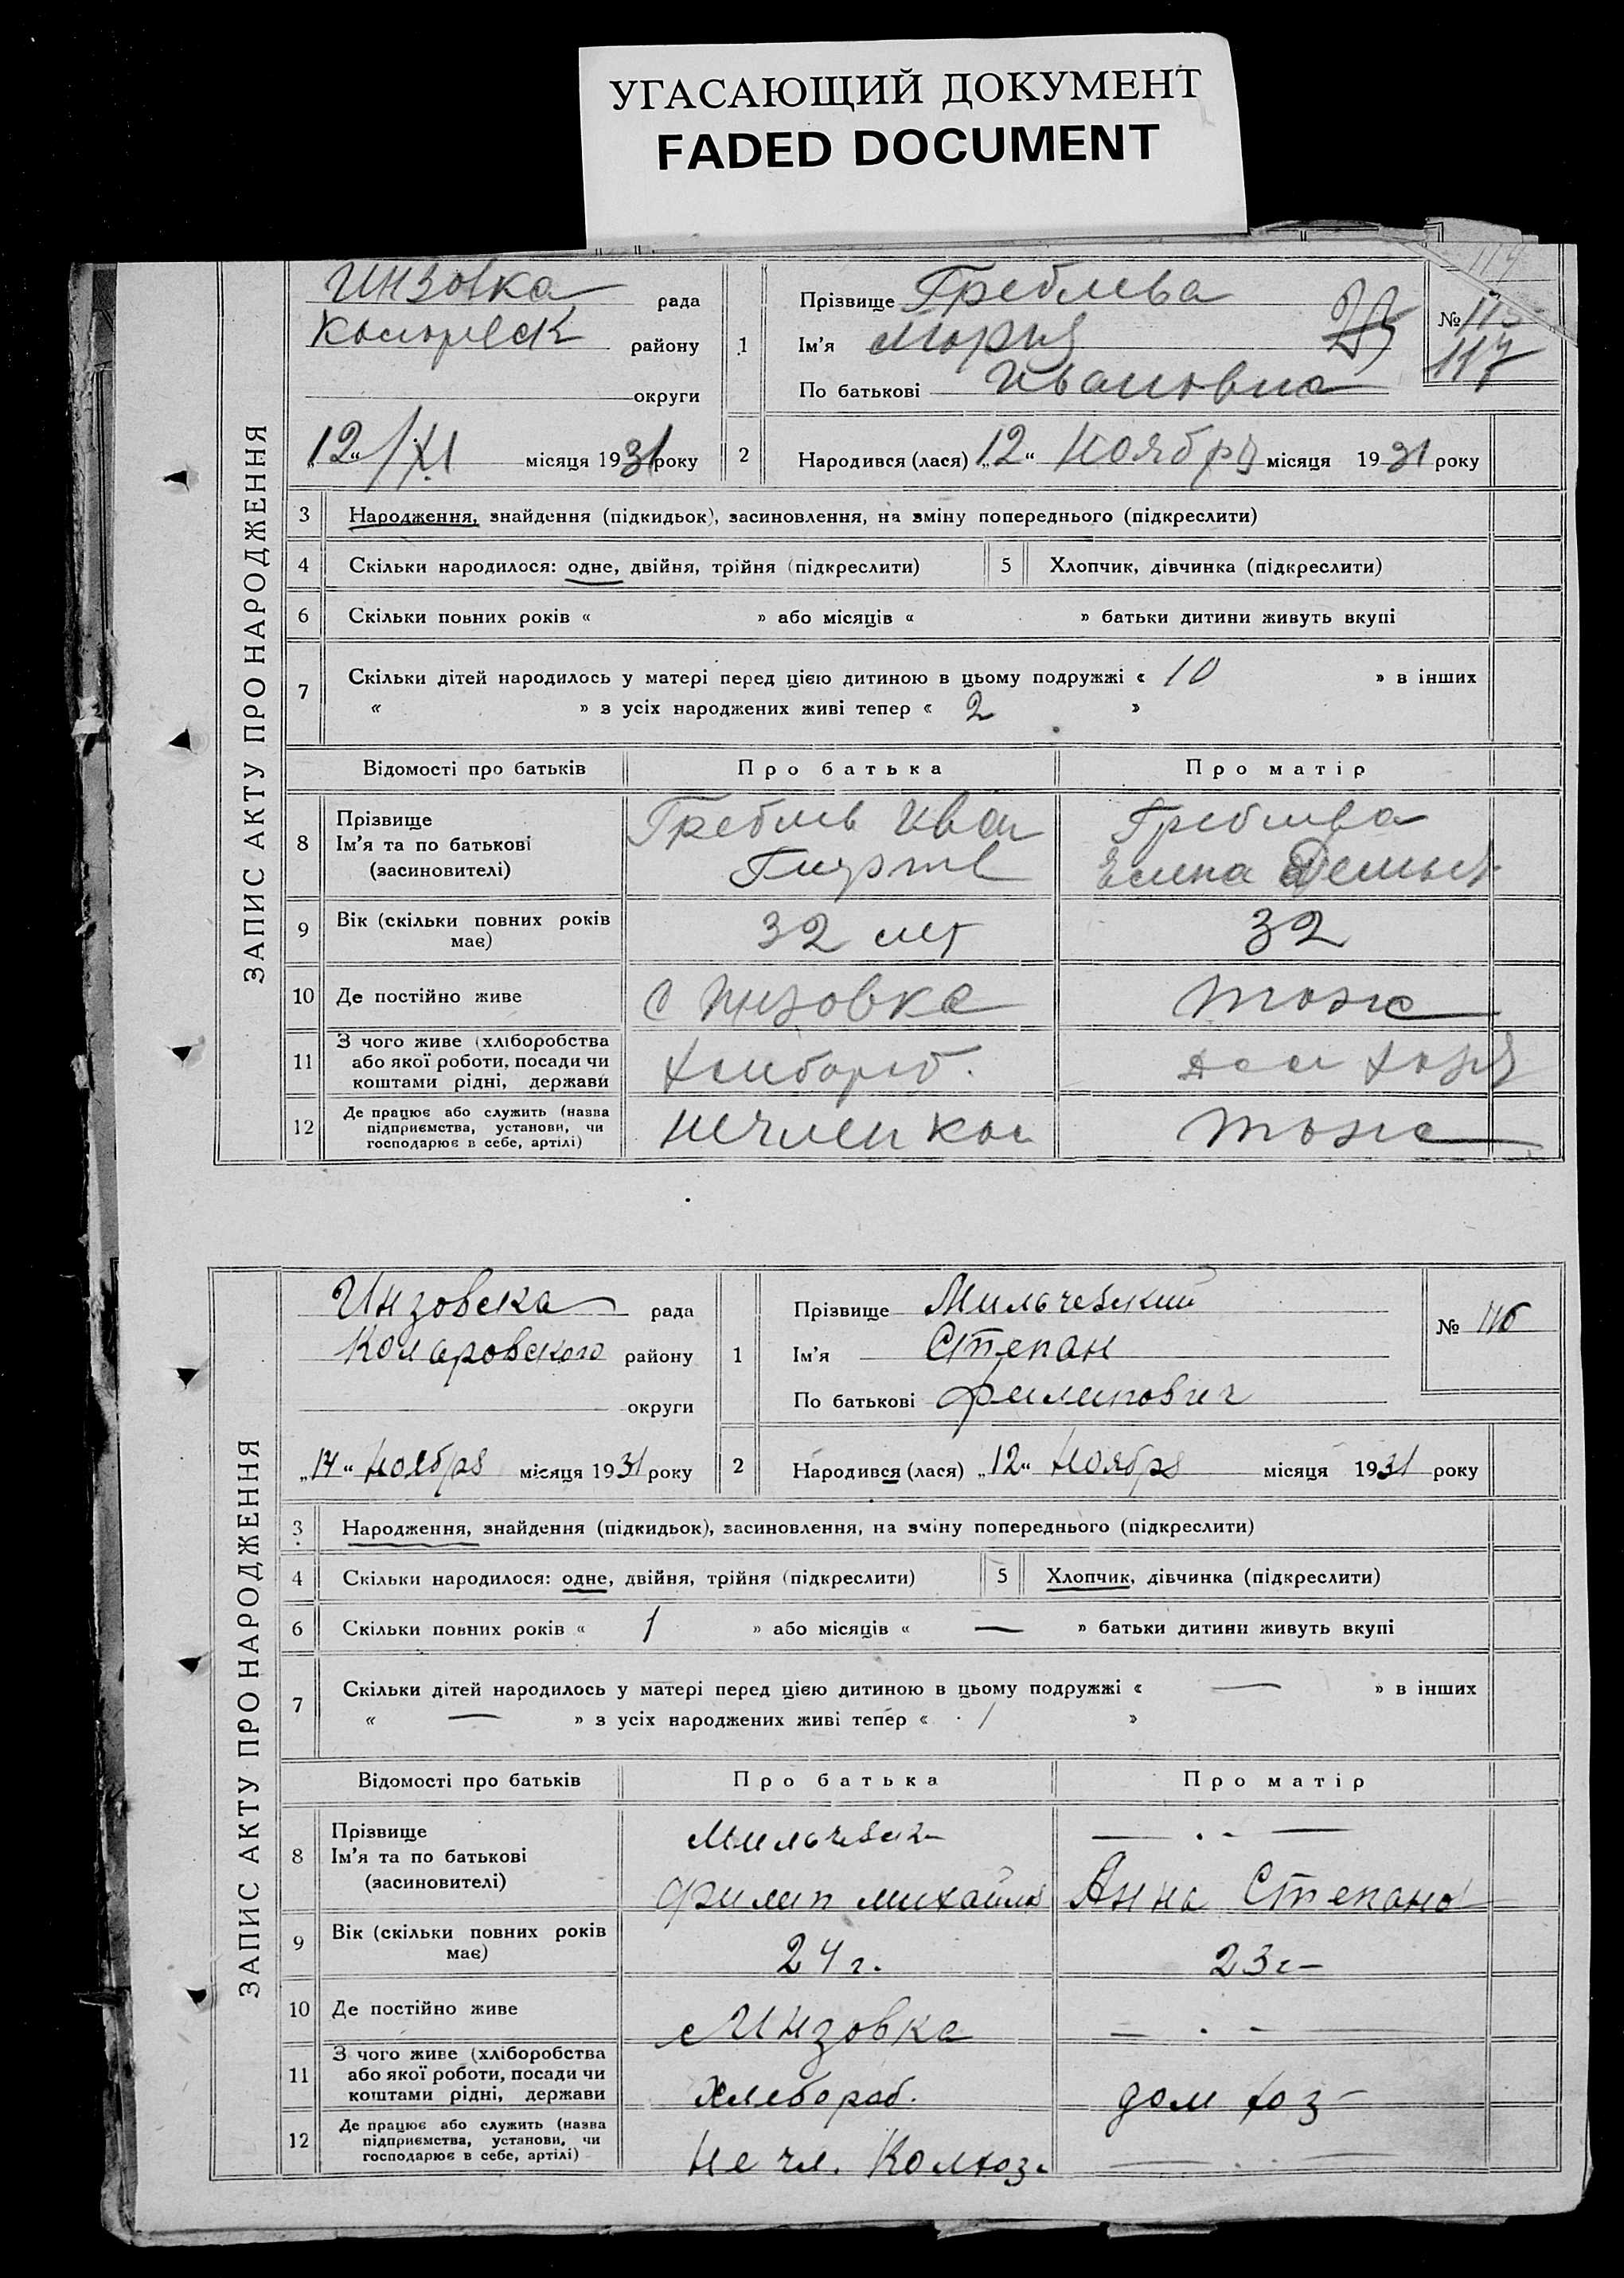 УГАСАЮЩИЙ ДОКУМЕНТ
FADED DOCUMENT
ЗАПИС АКТУ ПРО НАРОДЖЕННЯ
Инзовка рада
району
округи
„12“ /XI місяця 1931 року
1
Прізвище Греблева
Ім'я Мария
По батькові Ивановна
№ 115
117
114
2 Народився (лася) „12“ Ноября місяця 1931 року
3 Народження, знайдення (підкидьок), засиновлення, на зміну попереднього (підкреслити)
4 Скільки народилося: одне, двійня, трійня (підкреслити) 5 Хлопчик, дівчинка (підкреслити)
6 Скільки повних років « » або місяців « » батьки дитини живуть вкупі
7 Скільки дітей народилось у матері перед цією дитиною в цьому подружжі « 10 » в інших
« » з усіх народжених живі тепер « 2 »
Відомості про батьків Про батька Про матір
8 Прізвище
Ім'я та по батькові
(засиновителі)
Греблев Иван
Греблева
Елена
9 Вік (скільки повних років має) 32 лет 32
10 Де постійно живе с Инзовка тоже
11 З чого живе (хліборобства або якої роботи, посади чи коштами рідні, держави дом хозя
12 Де працює або служить (назва підприємства, установи, чи господарює в себе, артілі) нечлен кол тоже
ЗАПИС АКТУ ПРО НАРОДЖЕННЯ
Инзовска рада
Коларовского району
округи
„14“ ноября місяця 1931 року
1
Прізвище Мильчевский
Ім'я Степан
По батькові Филипович
№ 116
2 Народився (лася) „12“ Ноября місяця 1931 року
3 Народження, знайдення (підкидьок), засиновлення, на зміну попереднього (підкреслити)
4 Скільки народилося: одне, двійня, трійня (підкреслити) 5 Хлопчик, дівчинка (підкреслити)
6 Скільки повних років « 1 » або місяців « — » батьки дитини живуть вкупі
7 Скільки дітей народилось у матері перед цією дитиною в цьому подружжі « — » в інших
« — » з усіх народжених живі тепер « 1 »
Відомості про батьків Про батька Про матір
8 Прізвище
Ім'я та по батькові
(засиновителі)
Мильчевск — . - —
Филип Михайлов Анна Степано
9 Вік (скільки повних років має) 24 г. 23 г —
10 Де постійно живе с Инзовка — . - —
11 З чого живе (хліборобства або якої роботи, посади чи коштами рідні, держави Хлебораб. дом хоз —
12 Де працює або служить (назва підприємства, установи, чи господарює в себе, артілі) Не чл. Колхоз. — . . —